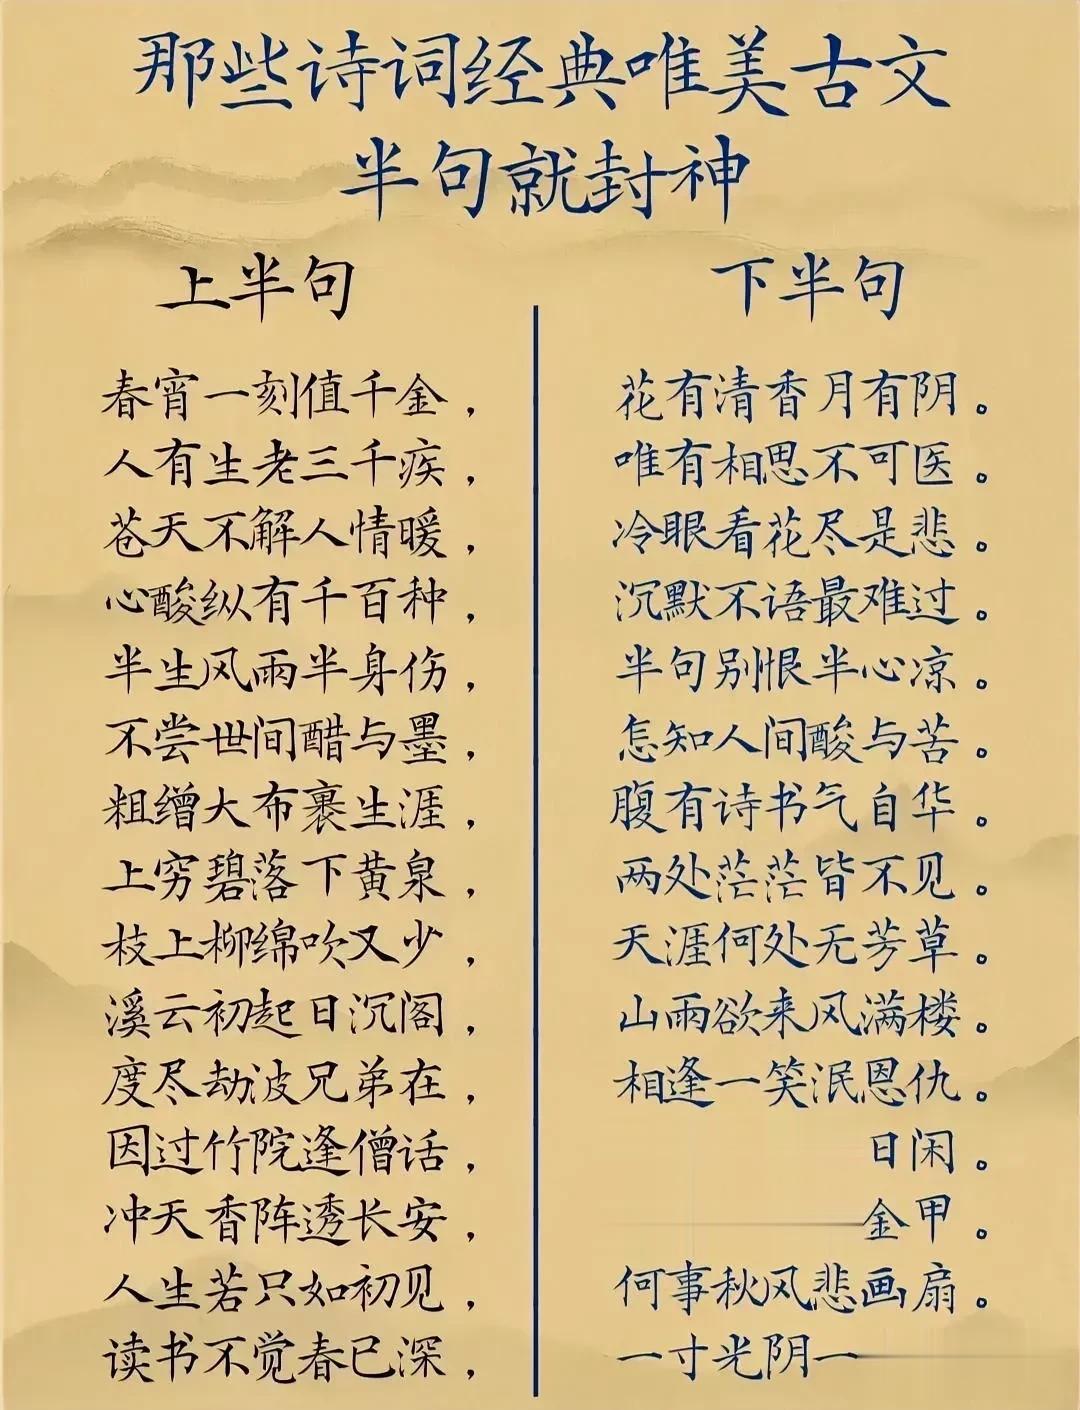 那些诗词经典唯美古文
半句就封神
上半句 下半句
春宵一刻值千金， 花有清香月有阴。
人有生老三千疾， 唯有相思不可医。
苍天不解人情暖， 冷眼看花尽是悲。
心酸纵有千百种， 沉默不语最难过。
半生风雨半身伤， 半句别恨半心凉。
不尝世间醋与墨， 怎知人间酸与苦。
粗缯大布裹生涯， 腹有诗书气自华。
上穷碧落下黄泉， 两处茫茫皆不见。
枝上柳绵吹又少， 天涯何处无芳草。
溪云初起日沉阁， 山雨欲来风满楼。
度尽劫波兄弟在， 相逢一笑泯恩仇。
因过竹院逢僧话， 日闲。
冲天香阵透长安， 金甲。
人生若只如初见， 何事秋风悲画扇。
读书不觉春已深， 一寸光阴一